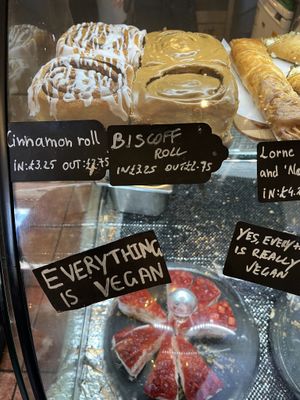 Cinnamon roll
IN:£3.25 OUT:£2.75
BISCOFF
ROLL
IN £3.25 OUT:£2.75
Lorne
and 'N
IN:£4.
EVERYTHING
IS VEGAN
YES, EVERYTH
IS REALLY
VEGAN